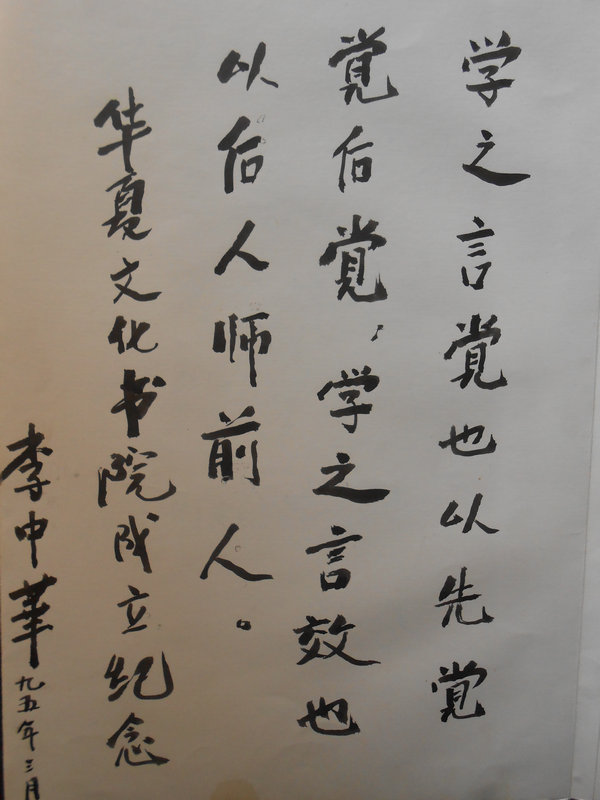 学之言觉也以先觉
觉后觉，学之言效也
以后人师前人。
华夏文化书院成立纪念
李中华
九五年三月